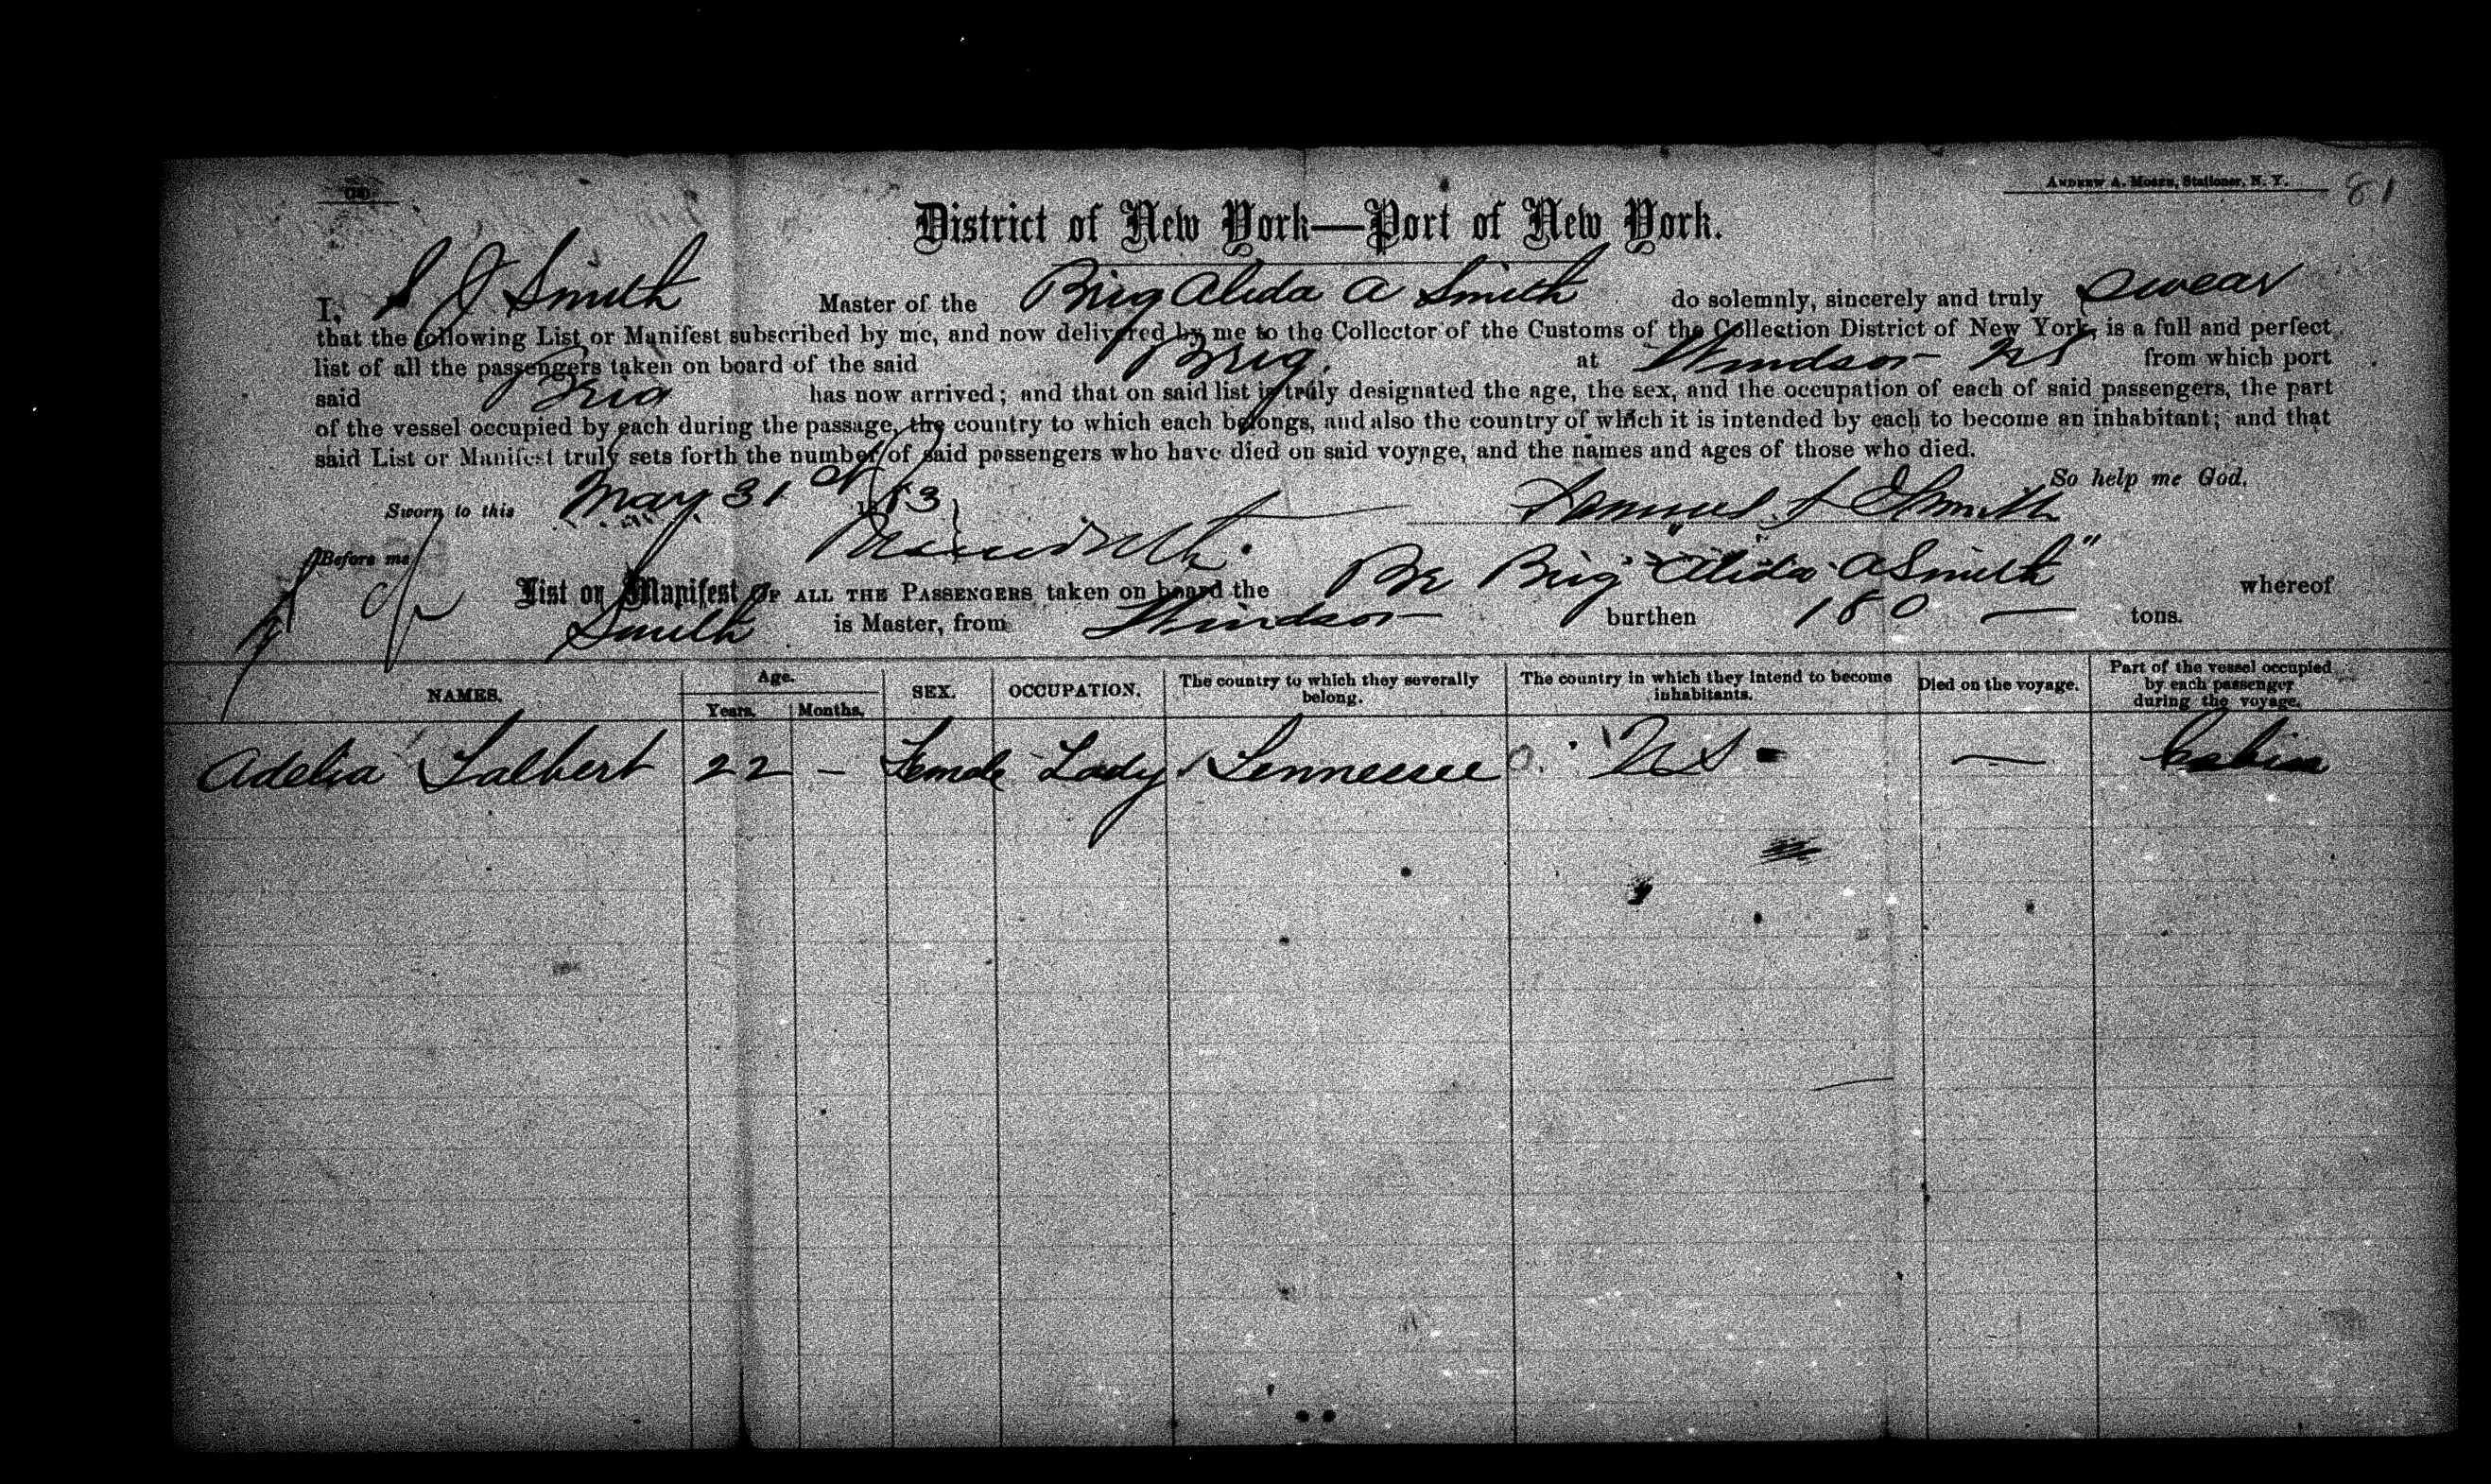 ANDREW A. MOSES, Stationer, N. Y. 81
District of New York—Port of New York.
I, S J Smith Master of the Brig Alida A Smith do solemnly, sincerely and truly swear
that the following List or Manifest subscribed by me, and now delivered by me to the Collector of the Customs of the Collection District of New York, is a full and perfect
list of all the passengers taken on board of the said Brig. at Windsor NS from which port
said Brig has now arrived; and that on said list is truly designated the age, the sex, and the occupation of each of said passengers, the part
of the vessel occupied by each during the passage, the country to which each belongs, and also the country of which it is intended by each to become an inhabitant; and that
said List or Manifest truly sets forth the number of said passengers who have died on said voyage, and the names and ages of those who died.
So help me God.
Sworn to this May 31st
Samuel J Smith
Before me
List or Manifest OF ALL THE PASSENGERS taken on board the Br Brig "Alida A Smith" whereof
Smith is Master, from Windsor burthen 180 — tons.
NAMES. Age. Years. Months. SEX. OCCUPATION. The country to which they severally belong. The country in which they intend to become inhabitants. Died on the voyage. Part of the vessel occupied by each passenger during the voyage.
Adelia Talbert 22 – Female Lady Tennessee — Cabin